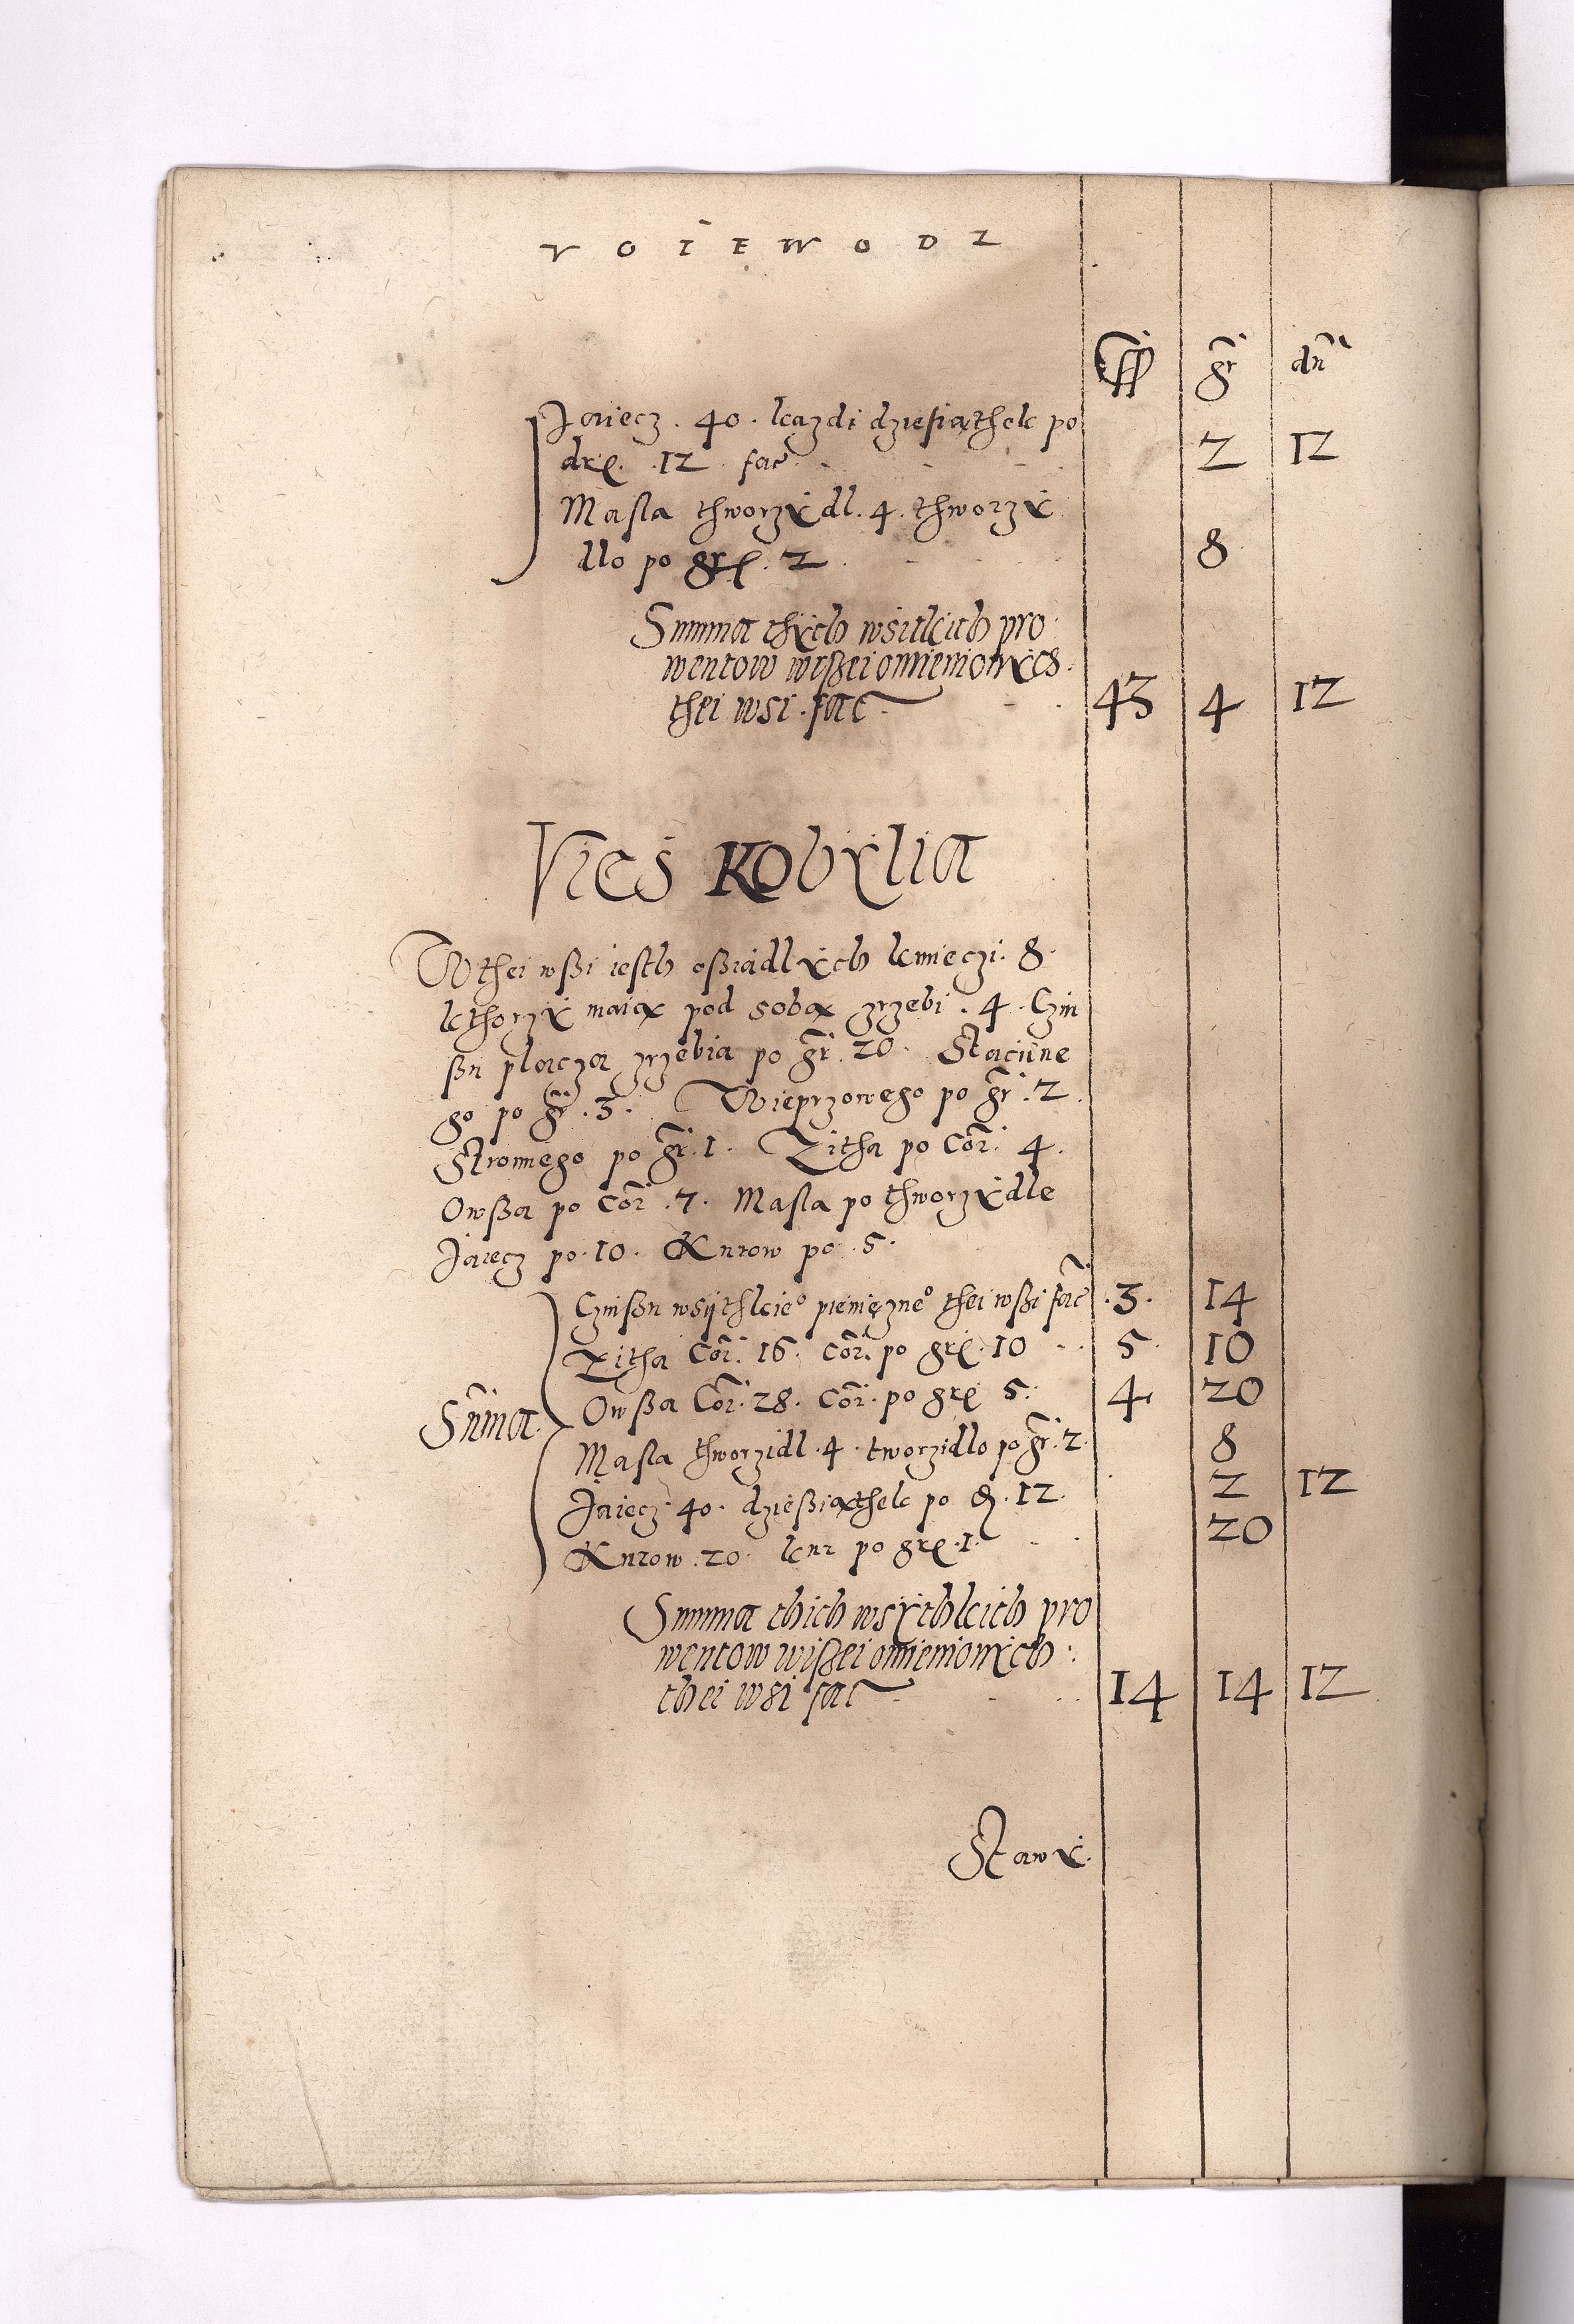 VOIEWODZ
ff gr dn
Jaiecz . 40 . kazdi dziesiąthek po
drę. 12 fac 2 12
Masla thworzÿdl . 4 . thworzÿ
dllo po grę . 2 . 8
Summa thÿch wsitkich pro
wentow wißei omienionÿch
thei wsi . fac 43 4 12
Vieś KObÿlia
W thei wßi iesth oßiadlÿch kmieczi . 8 .
kthorzÿ maią pod sobą zrzebi . 4 . Czin
ßu placza zrzebia po gr . 20 . Staciine
go po gr . 3 . Wieprzowego po gr . 2 .
Stronnego po gr . 1 . Zitha po Cor . 4 .
Owßa po Cor . 7 . Masla po thworzÿdle
Jaiecz po . 10 . Kurow po . 5 .
Czinßu wsÿthkieo pieniężneo thei wßi fac . 3 . 14
Zitha Cor . 16 . Cor . po grę . 10 5 10
Summa Owßa Cor . 28 . Cor . po grę 5 . 4 20
Masla thworzidl . 4 . tworzidlo po gr . 2 . 8
Jaiecz . 40 . dzießiąthek po d . 12 . 2 12
Kurow . 20 . kur po grę . 1 . 20
Summa thich wsÿthkich pro
wentow wißei omienionÿch
thei wsi fac 14 14 12
Stawÿ .